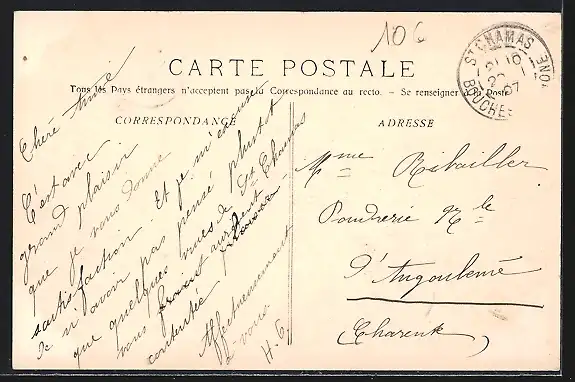 106
CARTE POSTALE
Tous les Pays étrangers n'acceptent pas la Correspondance au recto. - Se renseigner à la Poste
CORRESPONDANCE
ADRESSE
St CHAMAS
21 10
22 - 1
07
BOUCHES
RHONE
Chère Amie
C'est avec
grand plaisir
que je vous donne
satisfaction. Et je m'excuse
de n'avoir pas pensé plutot
que quelques vues de St Chamas
vous
contentée
Affectueusement
à vous
H. G.
Mme Ribailler
Poudrerie Nle
d'Angoulême
Charente